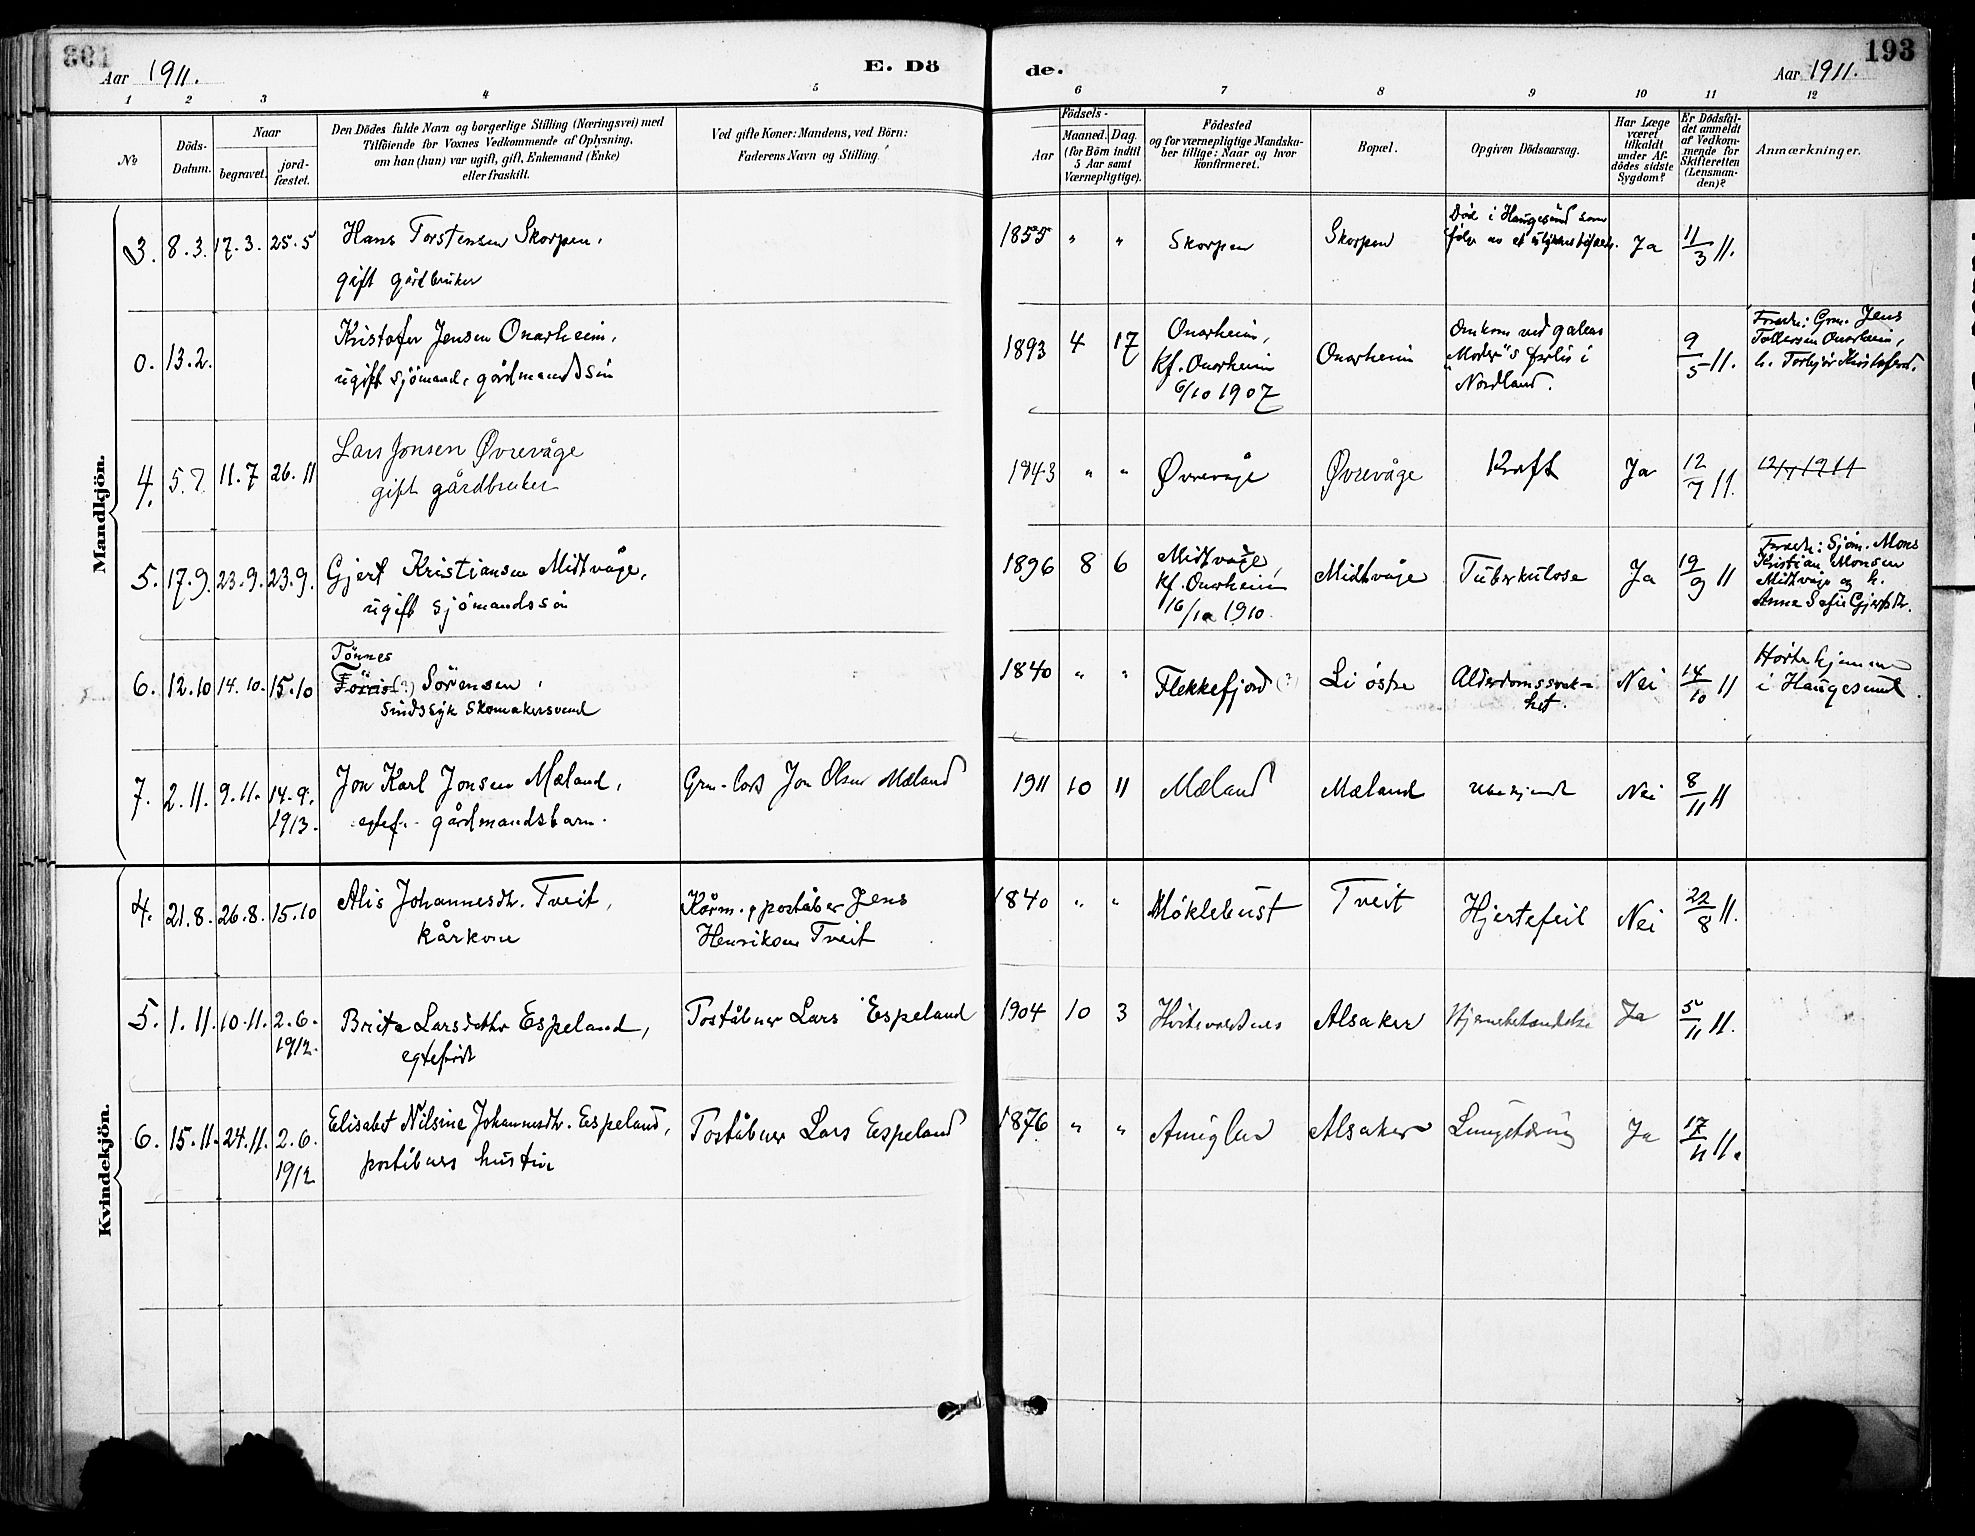 Aar 1911.
E. Dö
de.
Aar 1911.
193
1 2 3 4 5 6 7 8 9 10 11 12
No
Döds-
Datum.
Naar
begravet.
jord-
fæstet.
Den Dödes fulde Navn og borgerlige Stilling (Næringsvei) med
Tilföiende for Voxnes Vedkommende af Oplysning,
om han (hun) var ugift, gift, Enkemand (Enke)
eller fraskilt.
Ved gifte Koner: Mandens, ved Börn:
Faderens Navn og Stilling.
Födsels-
Aar
Maaned.
Dag.
(for Börn indtil
5 Aar samt
Værnepligtige).
Födested
og for værnepligtige Mandska-
ber tillige: Naar og hvor
konfirmeret.
Bopæl.
Opgiven Dödsaarsag.
Har Læge
været
tilkaldt
under Af-
dödes sidste
Sygdom?
Er Dödsfal-
det anmeldt
af Vedkom-
mende for
Skifteretten
(Lensman-
den)?
Anmærkninger.
Mandkjön.
3. 8.3. 17.3. 25.5
Hans Torstensen Skorpen,
gift gårdbruker
1855 " " Skorpen Skorpen
Död i Haugesund som
følge av et
Ja 11/3 11.
0. 13.2.
Kristofer Jensen Onarheim,
ugift sjömand, gårdmandssön
1893 4 17
Onarheim,
kf. Onarheim
6/10 1907
Onarheim
Omkom ved galeas
"Moder"s forlis i
Nordland.
9/5 11.
Forældr: Grm. Jens
Tollefsen Onarheim,
h. Torbjör Kristofersd.
4. 5.7 11.7 26.11
Lars Jonsen Øvrevåge
gift gårdbruker
1843 " " Øvrevåge Øvrevåge Kræft Ja 12/7 11. 12/7 1911
5. 17.9. 23.9. 23.9.
Gjert Kristiansen Midtvåge,
ugift sjömandssön
1896 8 6
Midtvåge,
kf. Onarheim
16/10 1910.
Midtvåge Tuberkulose Ja 19/9 11
Forældr: Sjöm. Mons
Kristian Monsen
Midtvåge og h.
Anna Sofie Gjertsdr.
6. 12.10 14.10. 15.10
Tönnes
(?) Sörensen,
sindssyk skomakersvend
1840 " " Flekkefjord (?) Li östre
Alderdomssvak-
het.
Nei 14/10 11
Hörte hjemme
i Haugesund.
7. 2.11. 9.11. 14.9.
1913.
Jon Karl Jonsen Mæland,
egtef. gårdmandsbarn.
Grm. Jon Olsen Mæland
1911 10 11 Mæland Mæland Ubekjendt Nei 8/11 11
Kvindekjön.
4. 21.8. 26.8. 15.10
Alis Johannesdtr. Tveit,
kårkone
Kårm. & poståber Jens
Henriksen Tveit
1840 " " Möklebust Tveit Hjertefeil Nei 22/8 11.
5. 1.11. 10.11. 2.6.
1912.
Brita Larsdatter Espeland,
egtefödt
Poståbner Lars Espeland
1904 10 3 Alsaker Hjernebetændelse Ja 5/11 11.
6. 15.11. 24.11. 2.6.
1912
Elisabet Nilsine Johannesdtr. Espeland,
poståbners hustru
Poståbner Lars Espeland
1876 " " Anuglen Alsaker Lungetæring Ja 17/11 11.